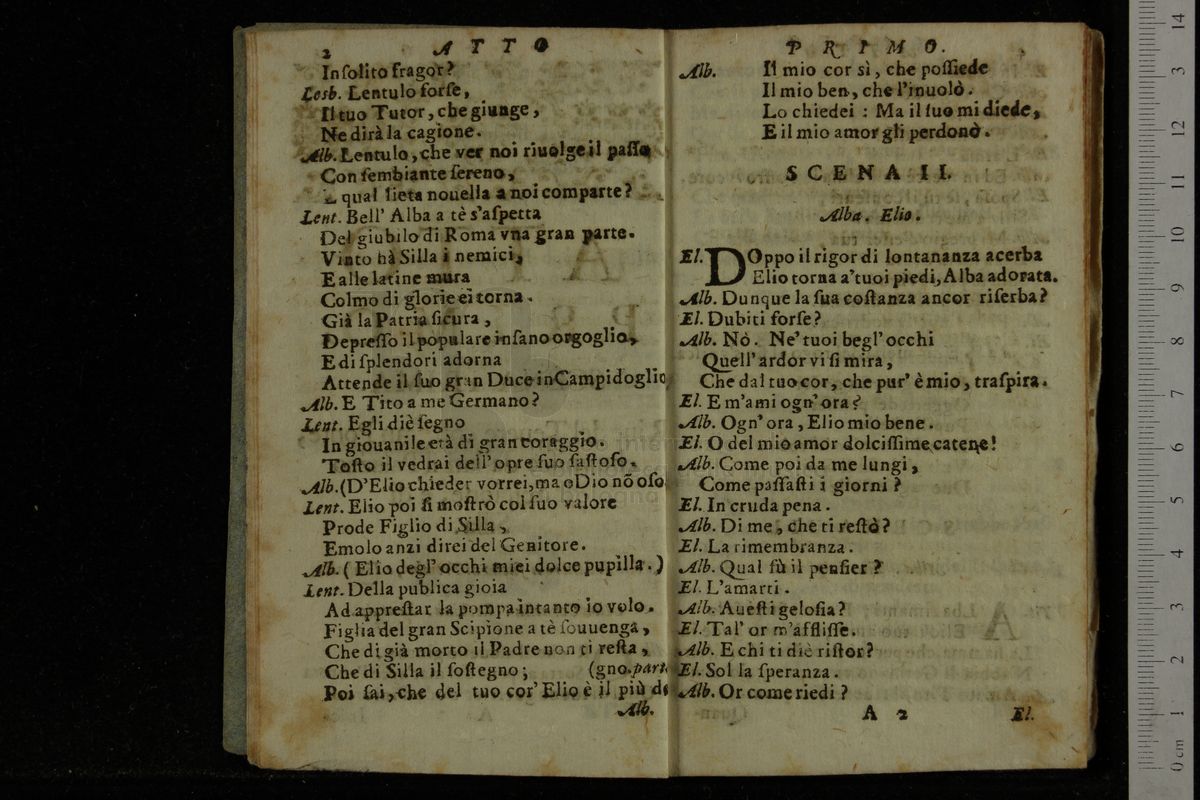 2 ATTO
Inſolito fragor?
Lesb. Lentulo forſe,
Il tuo Tutor, che giunge,
Ne dirà la cagione.
Alb. Lentulo, che ver noi riuolge il paſſo
Con ſembiante ſereno,
qual lieta nouella a noi comparte?
Lent. Bell' Alba a tè s'aſpetta
Del giubilo di Roma vna gran parte.
Vinto hà Silla i nemici,
E alle latine mura
Colmo di glorie ei torna.
Già la Patria ſicura,
Depreſſo il popolare inſano orgoglio,
E di ſplendori adorna
Attende il ſuo gran Duce in Campidoglio
Alb. E Tito a me Germano?
Lent. Egli diè ſegno
In giouanile età di gran coraggio.
Toſto il vedrai dell' opre ſuo faſtoſo.
Alb. (D'Elio chieder vorrei, ma oDio nõ oſo
Lent. Elio poi ſi moſtrò col ſuo valore
Prode Figlio di Silla,
Emolo anzi direi del Genitore.
Alb. ( Elio degl' occhi miei dolce pupilla. )
Lent. Della publica gioia
Ad appreſtar la pompa intanto io volo.
Figlia del gran Scipione a tè ſouuenga,
Che di già morto il Padre non ti reſta,
Che di Silla il ſoſtegno; (gno. parte
Poi ſai, che del tuo cor' Elio è il più de
Alb.
PRIMO.
Alb. Il mio cor sì, che poſſiede
Il mio ben, che l'inuolò.
Lo chiedei : Ma il ſuo mi diede,
E il mio amor gli perdonò.
SCENA II.
Alba. Elio.
El. DOppo il rigor di lontananza acerba
Elio torna a'tuoi piedi, Alba adorata.
Alb. Dunque la ſua coſtanza ancor riſerba?
El. Dubiti forſe?
Alb. Nò. Ne' tuoi begl' occhi
Quell' ardor vi ſi mira,
Che dal tuo cor, che pur' è mio, traſpira.
El. E m'ami ogn' ora?
Alb. Ogn' ora, Elio mio bene.
El. O del mio amor dolciſſime catene!
Alb. Come poi da me lungi,
Come paſſaſti i giorni?
El. In cruda pena.
Alb. Di me, che ti reſtò?
El. La rimembranza.
Alb. Qual fù il penſier?
El. L'amarti.
Alb. Aueſti geloſia?
El. Tal' or m'affliſſe.
Alb. E chi ti diè riſtor?
El. Sol la ſperanza.
Alb. Or come riedi?
A 2 El.
0 cm 1 2 3 4 5 6 7 8 9 10 11 12 13 14